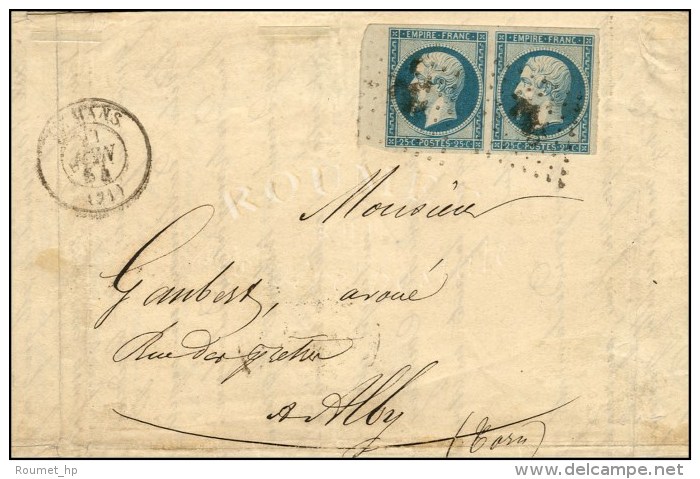 EMPIRE FRANC. EMPIRE FRANC.
25 C. POSTES 25 C. 25 C. POSTES 25 C.
MANS
11
54
(71)
ROUMET
Monsieur
Gaubert, avoué
Rue des
a Alby
(Tarn)
Roumet_hp
www.delcampe.net